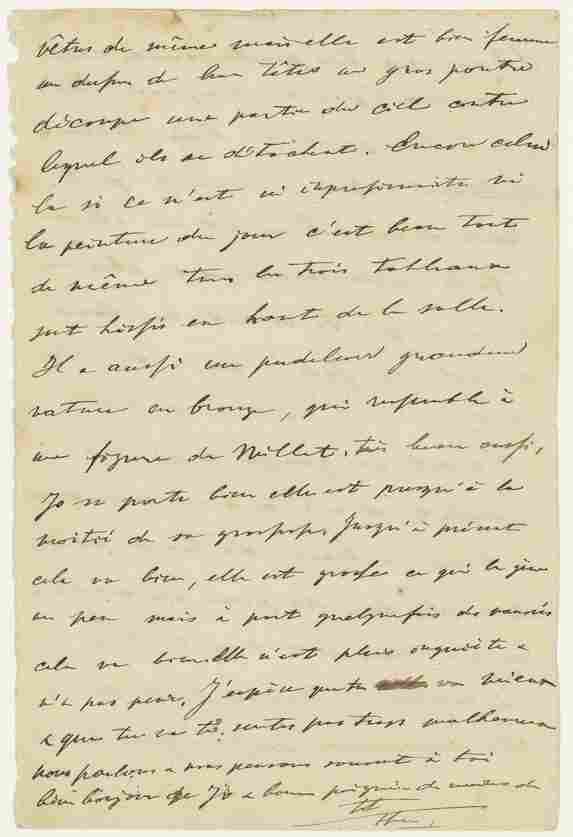 vêtus de même mais elle est bien femme
au dessus de leur têtes un gros poutre
découpe une partie du ciel contre
lequel ils se détachent. Encore celui
là si ce n'est ni impressioniste ni
la peinture du jour c'est beau tout
de même tous les trois tableaux
sont hissés en haut de la salle.
Il a aussi un puddleur grandeur
nature en bronze, qui ressemble à
une figure de Millet, très beau aussi,
Jo se porte bien elle est presqu'à la
moitié de sa grossesse, Jusqu'à présent
cela va bien, elle est grosse ce qui la gène
un peu mais à part quelquefois des nausées
cela va bien. Elle n'est plus inquiète &
n'a pas peur. J'espère que tu va mieux
& que tu va te sentir pas trop malheureux
nous parlons & nous pensons souvent à toi
bien bonjour de Jo & bonne poignée de mains de
Theo